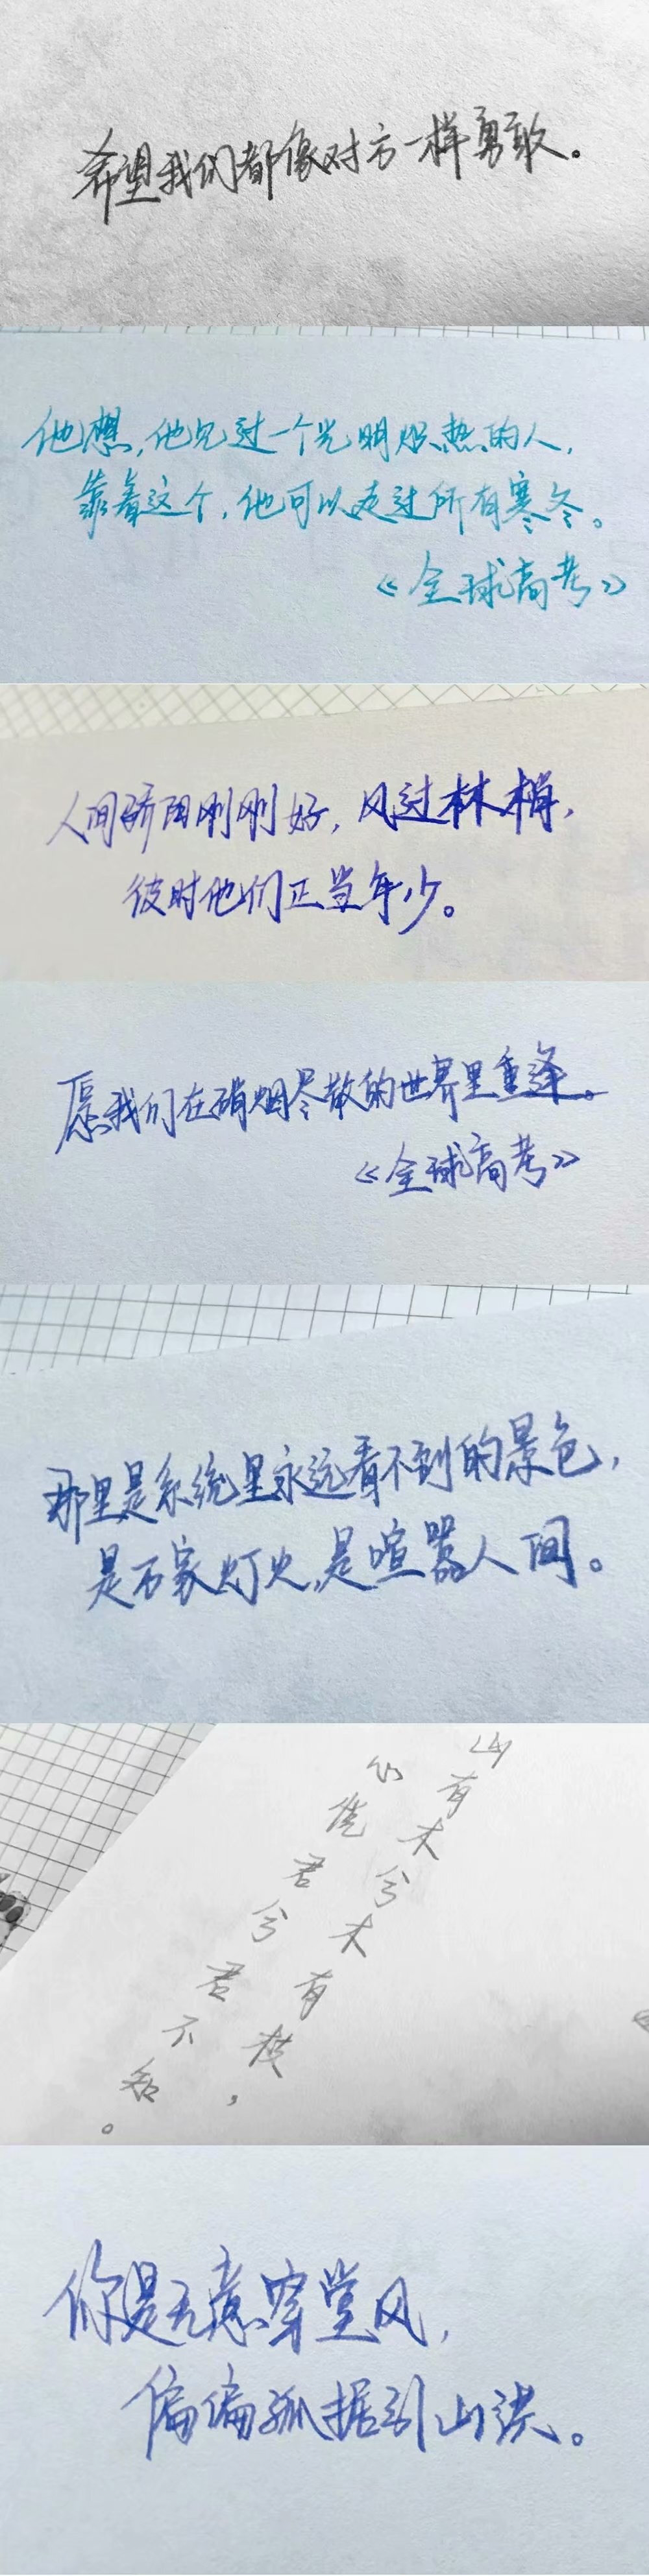 希望我们都像对方一样勇敢。
他想,他见过一个光明炽热的人,
靠着这个,他可以走过所有寒冬。
《全球高考》
人间骄阳刚刚好,风过林梢,
彼时他们正当年少。
愿我们在硝烟尽散的世界里重逢。
《全球高考》
那里是系统里永远看不到的景色,
是万家灯火,是喧嚣人间。
山有木兮木有枝,
心悦君兮君不知。
你是无意穿堂风,
偏偏孤据引山洪。